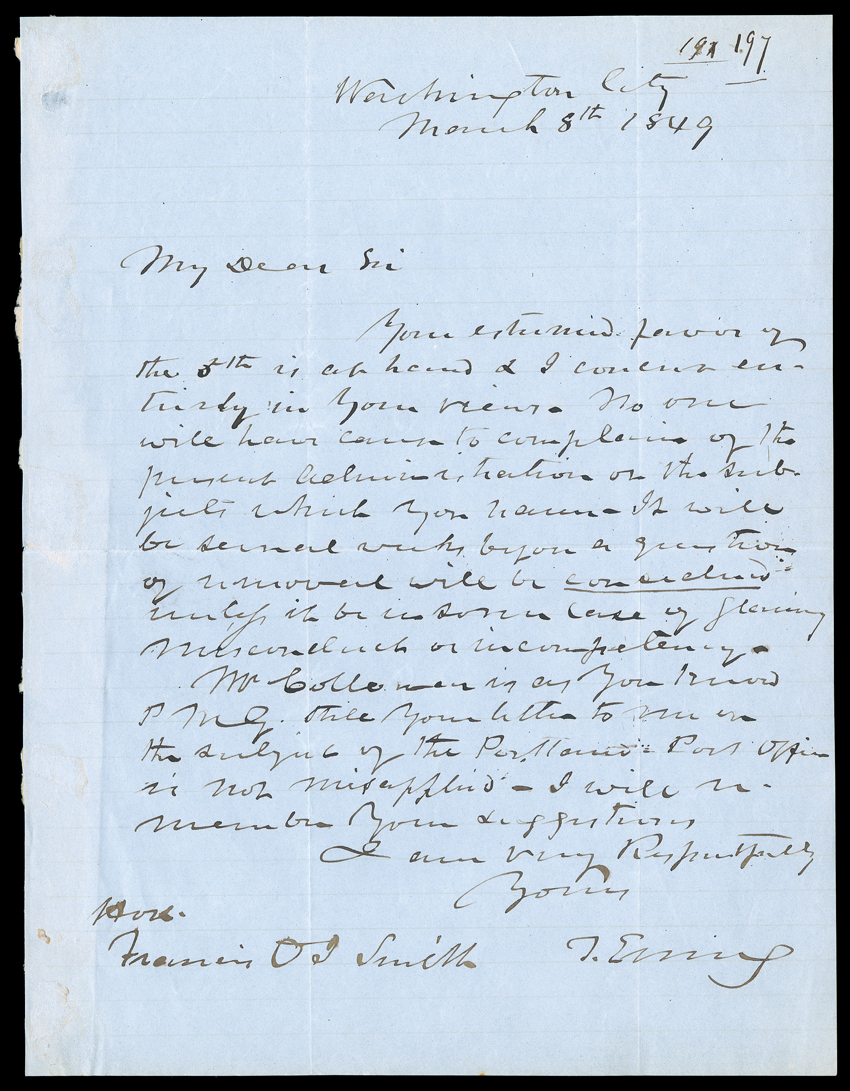 197 197
Washington City
March 8th 1849
My Dear Sir
Your esteemed favor of
the 5th is at hand & I concur en-
tirely in your views. No one
will have cause to complain of the
present administration on the sub-
jects which you name - It will
be several weeks before a question
of removal will be considered
unless it be in some case of glaring
misconduct or incompetency.
Mr Collamer is as you know
P M G. still your letter to me on
the subject of the Portland Post Office
is not misapplied - I will re-
member your suggestions
I am very Respectfully
Yours
Hon.
Francis O J Smith T. Ewing